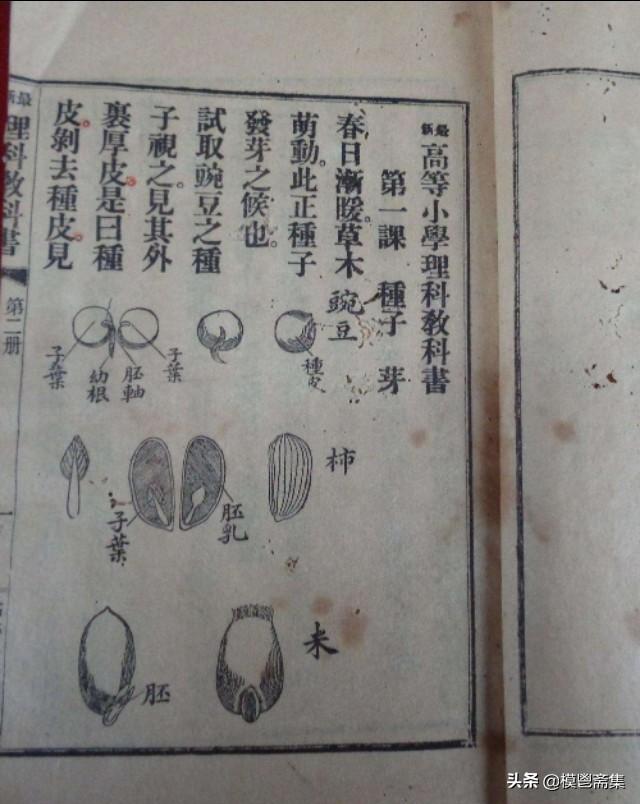 最新高等小學理科教科書
第一課 種子 芽
春日漸暖。草木
萌動。此正種子
發芽之候也。
試取豌豆之種
子視之。見其外
裹厚皮。是曰種
皮。剝去種皮。見
豌豆
種皮
子葉
胚軸
幼根
子葉
柿
胚乳
子葉
米
胚
最新理科教科書
第二册
头条 @模鬯斋集